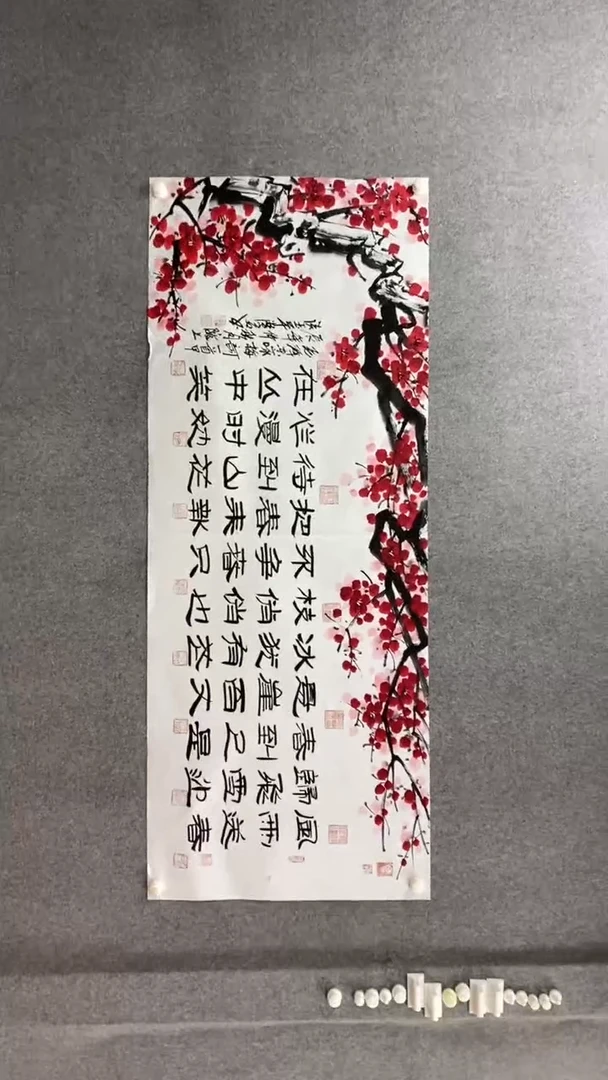 風雨送春
歸飛雪迎
春到已是
悬崖百丈
冰犹有花
枝俏俏也
不争春只
把春来報
待到山花
烂漫时她
在丛中笑